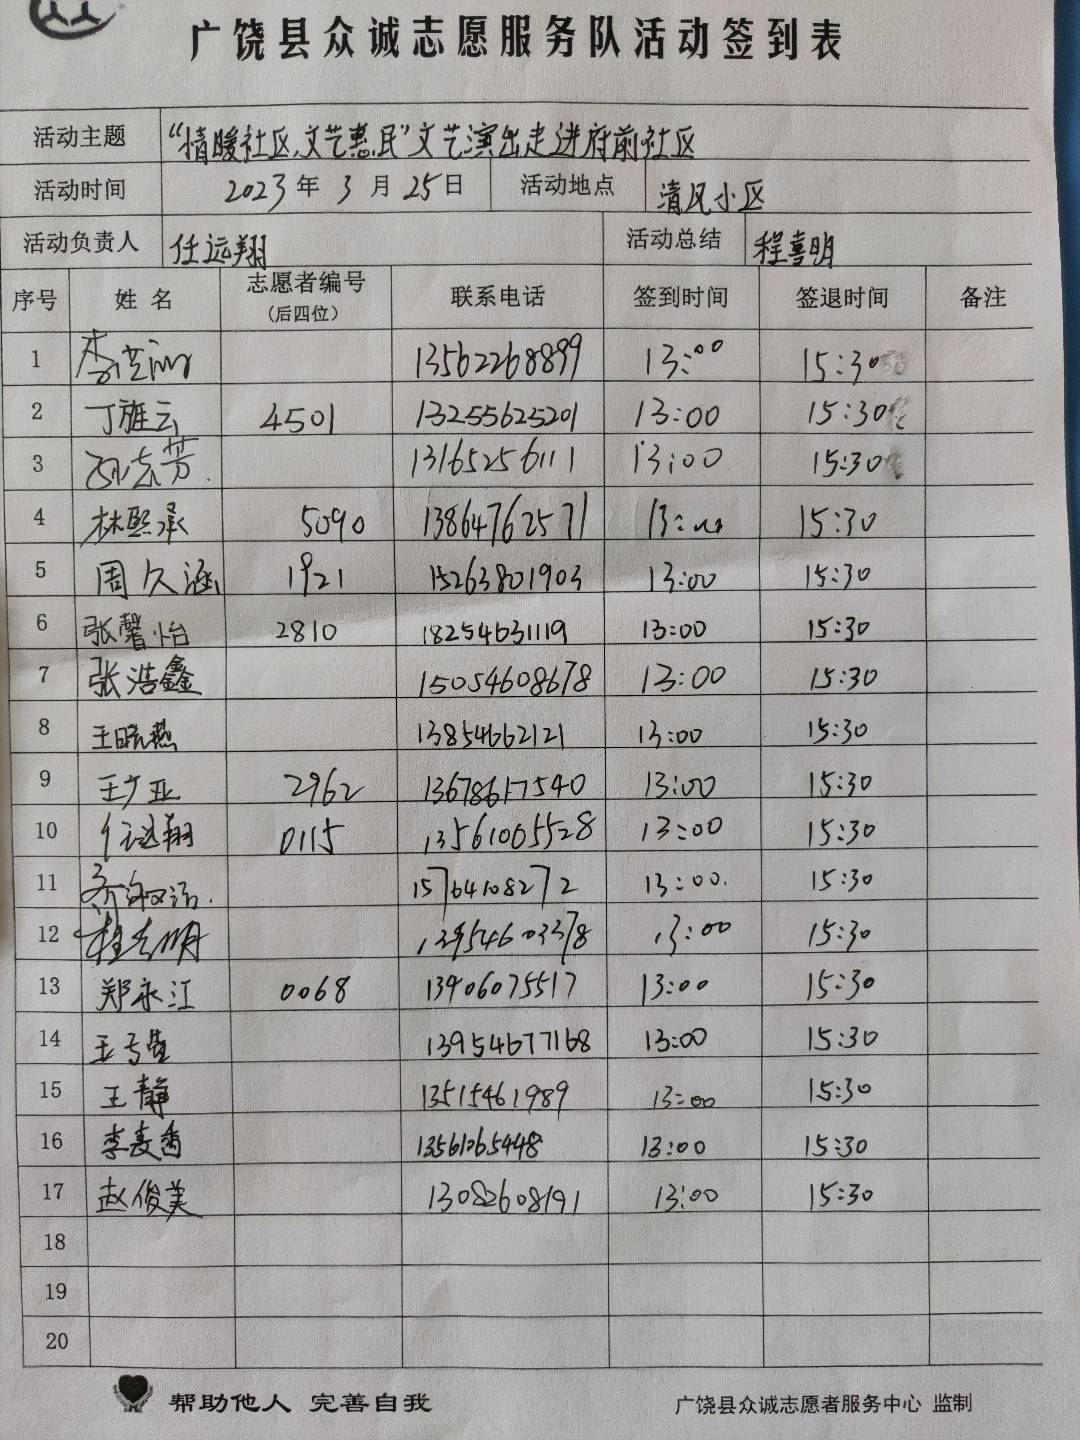 广饶县众诚志愿服务队活动签到表
活动主题 “情暖社区,文艺惠民”文艺演出走进府前社区
活动时间 2023年3月25日 活动地点 清风小区
活动负责人 任远翔 活动总结 程喜明
序号 姓名 志愿者编号(后四位) 联系电话 签到时间 签退时间 备注
1 李 13562268899 13:00 15:30
2 丁雅云 4501 13255625201 13:00 15:30
3 13165256111 13:00 15:30
4 林熙承 5090 13864762571 13:00 15:30
5 周久涵 1921 15263801903 13:00 15:30
6 张馨怡 2810 18254631119 13:00 15:30
7 张浩鑫 15054608678 13:00 15:30
8 王晓燕 13854662121 13:00 15:30
9 王少亚 2962 13678617540 13:00 15:30
10 任远翔 0115 13561005528 13:00 15:30
11 15764108272 13:00. 15:30
12 程喜明 13954603378 13:00 15:30
13 郑永江 0068 13906075517 13:00 15:30
14 王 13954677168 13:00 15:30
15 王静 13515461989 13:00 15:30
16 李麦香 13561065448 13:00 15:30
17 赵俊美 13082608191 13:00 15:30
18
19
20
帮助他人 完善自我 广饶县众诚志愿者服务中心 监制